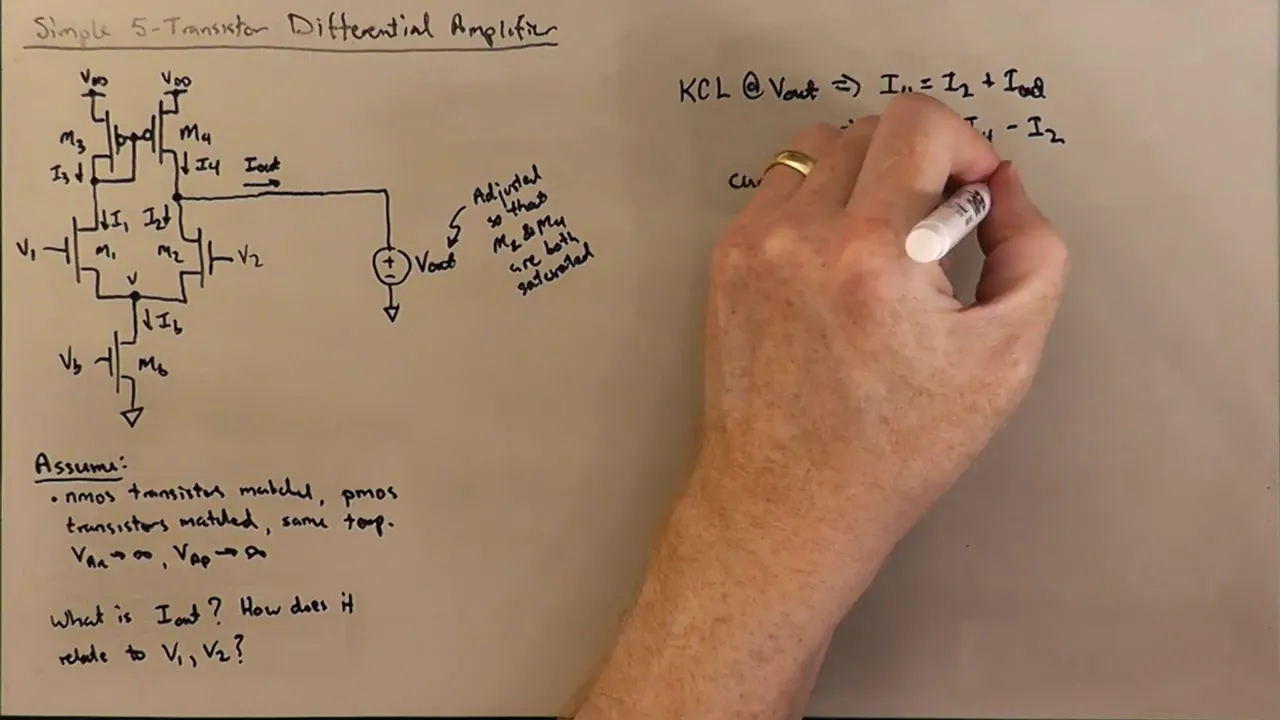 Simple 5-Transistor Differential Amplifier
VDD VDD
M3 M4
I3 I4 Iout
I1 I2
V1 M1 M2 V2
V
Ib
Vb Mb
Vout
Adjusted
so that
M2 & M4
are both
saturated
Assume:
• nmos transistors matched, pmos
transistors matched, same temp.
VAn → ∞, VAp → ∞
What is Iout? How does it
relate to V1, V2?
KCL @ Vout => I4 = I2 + Iout
I4 - I2